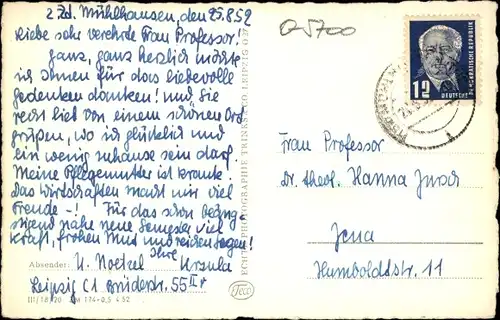 z. Zd. Mühlhausen, den 25.8.52
Liebe sehr verehrte Frau Professor!
Ganz, ganz herzlich möchte
ich Ihnen für das liebevolle
Gedenken danken! Und Sie
recht lieb von einem schönen Ort
grüßen, wo ich glücklich und
ein wenig zuhause sein darf.
Meine Pflegemutter ist krank.
Das Wirtschaften macht mir viel
Freude –! Für das schon
nahe neue Semester viel
Kraft, frohen Mut und reichen Segen!
Ihre
Absender: U. Noetzel Ursula
Leipzig C1 55 II r
III/18/20 DM 174-0,5 4.52
ECHTE PHOTOGRAPHIE TRINKS & CO LEIPZIG O 27
Teco
Q 5700
12
DEUTSCHE
DEMOKRATISCHE REPUBLIK
Frau Professor
Dr. theol. Hanna
Jena
Humboldtstr. 11